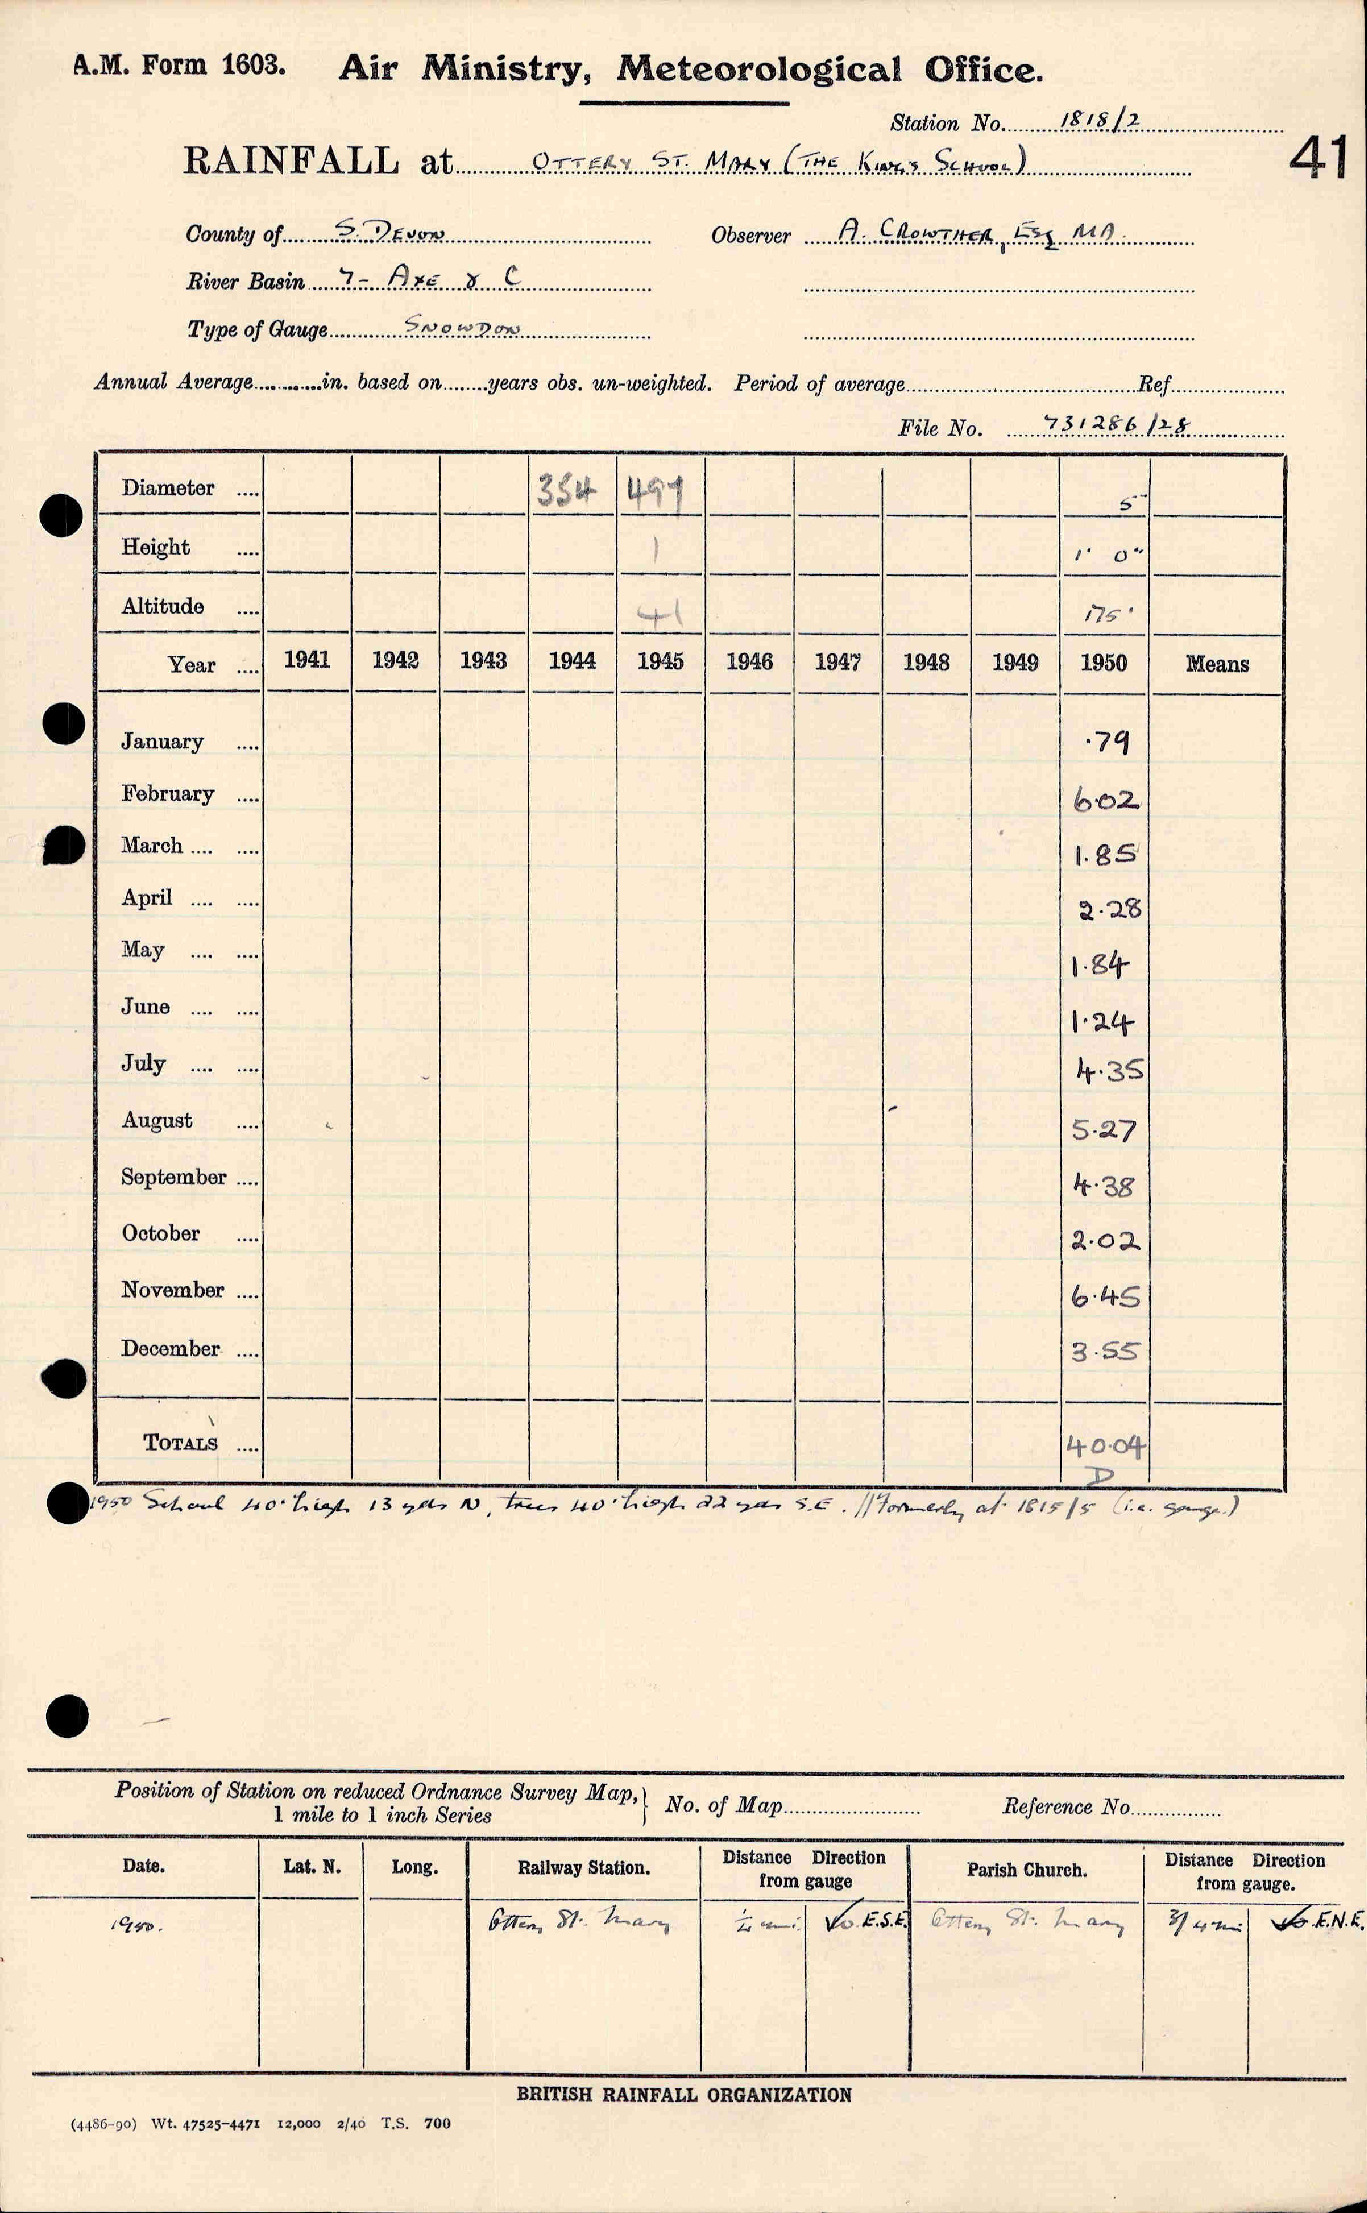 A.M. Form 1603. Air Ministry, Meteorological Office.
Station No. 1818/2
41
RAINFALL at OTTERY ST. MARY (THE KING'S SCHOOL)
County of S. DEVON Observer A. CROWTHER, ESQ MA.
River Basin 7 - AXE & C
Type of Gauge SNOWDON
Annual Average in. based on years obs. un-weighted. Period of average Ref.
File No. 731286/28
Diameter 354 497 5
Height 1 1' 0"
Altitude 41 175'
Year 1941 1942 1943 1944 1945 1946 1947 1948 1949 1950 Means
January .79
February 6.02
March 1.85
April 2.28
May 1.84
June 1.24
July 4.35
August 5.27
September 4.38
October 2.02
November 6.45
December 3.55
TOTALS 40.04
D
1950 School 40' high 13 yds N, trees 40' high 22 yds S.E. // Formerly at 1815/5 (i.e. gauge.)
Position of Station on reduced Ordnance Survey Map, 1 mile to 1 inch Series } No. of Map Reference No.
Date. Lat. N. Long. Railway Station. Distance Direction from gauge Parish Church. Distance Direction from gauge.
1950. Ottery St. Mary 1/4 mi. E.S.E. Ottery St. Mary 3/4 mi E.N.E.
BRITISH RAINFALL ORGANIZATION
(4486-90) Wt. 47525-4471 12,000 2/40 T.S. 700